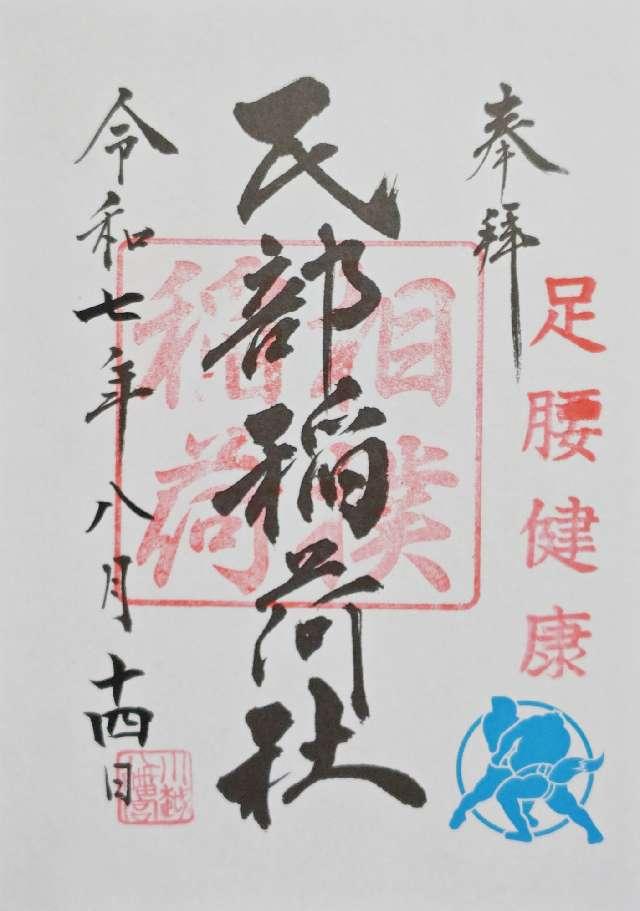 奉拝
足腰健康
民部稲荷社
相撲
稲荷
令和七年八月十四日
川越
八幡宮